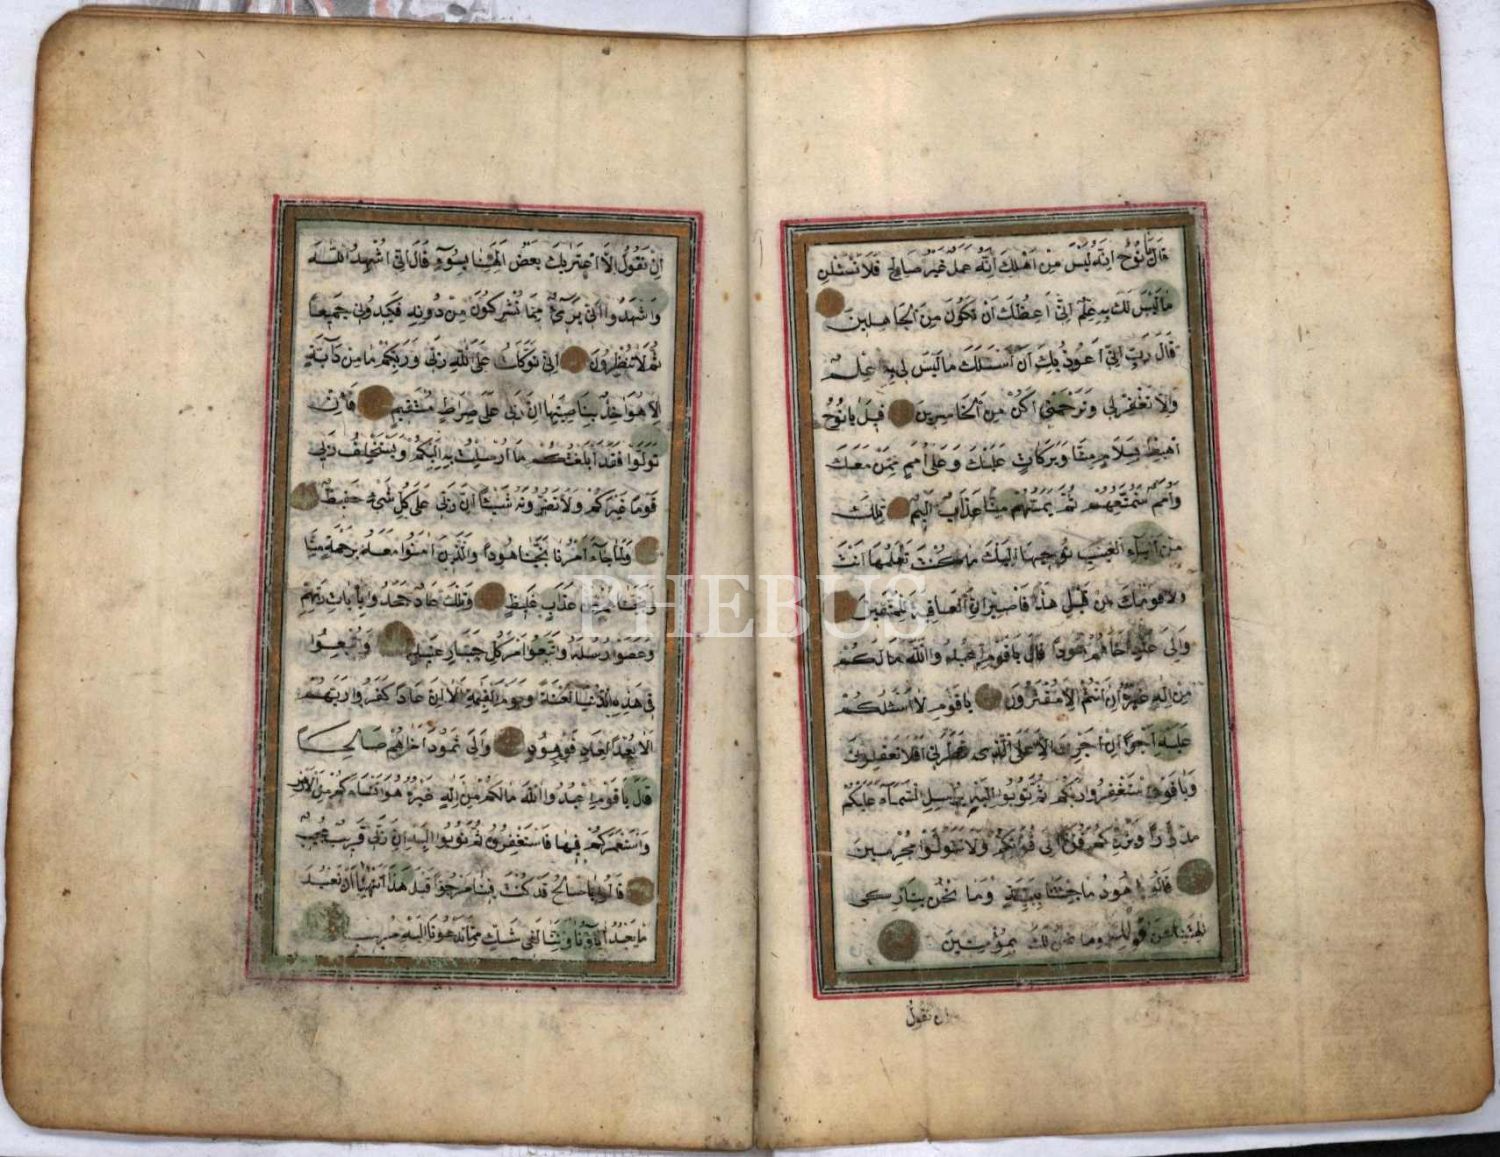 قَالَ يَا نُوحُ اِنَّهُ لَيْسَ مِنْ اَهْلِكَ اِنَّهُ عَمَلٌ غَيْرُ صَالِحٍ فَلَا تَسْئَلْنِ
مَا لَيْسَ لَكَ بِهِ عِلْمٌ اِنّٖى اَعِظُكَ اَنْ تَكُونَ مِنَ الْجَاهِلٖينَ
قَالَ رَبِّ اِنّٖى اَعُوذُ بِكَ اَنْ اَسْئَلَكَ مَا لَيْسَ لٖى بِهٖ عِلْمٌ
وَاِلَّا تَغْفِرْ لٖى وَتَرْحَمْنٖى اَكُنْ مِنَ الْخَاسِرٖينَ قٖيلَ يَا نُوحُ
اهْبِطْ بِسَلَامٍ مِنَّا وَبَرَكَاتٍ عَلَيْكَ وَعَلٰى اُمَمٍ مِمَّنْ مَعَكَ
وَاُمَمٌ سَنُمَتِّعُهُمْ ثُمَّ يَمَسُّهُمْ مِنَّا عَذَابٌ اَلٖيمٌ تِلْكَ
مِنْ اَنْبَاءِ الْغَيْبِ نُوحٖيهَا اِلَيْكَ مَا كُنْتَ تَعْلَمُهَا اَنْتَ
وَلَا قَوْمُكَ مِنْ قَبْلِ هٰذَا فَاصْبِرْ اِنَّ الْعَاقِبَةَ لِلْمُتَّقٖينَ
وَاِلٰى عَادٍ اَخَاهُمْ هُودًا قَالَ يَا قَوْمِ اعْبُدُوا اللّٰهَ مَا لَكُمْ
مِنْ اِلٰهٍ غَيْرُهُ اِنْ اَنْتُمْ اِلَّا مُفْتَرُونَ يَا قَوْمِ لَا اَسْئَلُكُمْ
عَلَيْهِ اَجْرًا اِنْ اَجْرِىَ اِلَّا عَلَى الَّذٖى فَطَرَنٖى اَفَلَا تَعْقِلُونَ
وَيَا قَوْمِ اسْتَغْفِرُوا رَبَّكُمْ ثُمَّ تُوبُوا اِلَيْهِ يُرْسِلِ السَّمَاءَ عَلَيْكُمْ
مِدْرَارًا وَيَزِدْكُمْ قُوَّةً اِلٰى قُوَّتِكُمْ وَلَا تَتَوَلَّوْا مُجْرِمٖينَ
قَالُوا يَا هُودُ مَا جِئْتَنَا بِبَيِّنَةٍ وَمَا نَحْنُ بِتَارِكٖى
اٰلِهَتِنَا عَنْ قَوْلِكَ وَمَا نَحْنُ لَكَ بِمُؤْمِنٖينَ
ان نقول
اِنْ نَقُولُ اِلَّا اعْتَرٰيكَ بَعْضُ اٰلِهَتِنَا بِسُوءٍ قَالَ اِنّٖى اُشْهِدُ اللّٰهَ
وَاشْهَدُوا اَنّٖى بَرٖىءٌ مِمَّا تُشْرِكُونَ مِنْ دُونِهٖ فَكٖيدُونٖى جَمٖيعًا
ثُمَّ لَا تُنْظِرُونَ اِنّٖى تَوَكَّلْتُ عَلَى اللّٰهِ رَبّٖى وَرَبِّكُمْ مَا مِنْ دَابَّةٍ
اِلَّا هُوَ اٰخِذٌ بِنَاصِيَتِهَا اِنَّ رَبّٖى عَلٰى صِرَاطٍ مُسْتَقٖيمٍ فَاِنْ
تَوَلَّوْا فَقَدْ اَبْلَغْتُكُمْ مَا اُرْسِلْتُ بِهٖ اِلَيْكُمْ وَيَسْتَخْلِفُ رَبّٖى
قَوْمًا غَيْرَكُمْ وَلَا تَضُرُّونَهُ شَيْئًا اِنَّ رَبّٖى عَلٰى كُلِّ شَىْءٍ حَفٖيظٌ
وَلَمَّا جَاءَ اَمْرُنَا نَجَّيْنَا هُودًا وَالَّذٖينَ اٰمَنُوا مَعَهُ بِرَحْمَةٍ مِنَّا
وَنَجَّيْنَاهُمْ مِنْ عَذَابٍ غَلٖيظٍ وَتِلْكَ عَادٌ جَحَدُوا بِاٰيَاتِ رَبِّهِمْ
وَعَصَوْا رُسُلَهُ وَاتَّبَعُوا اَمْرَ كُلِّ جَبَّارٍ عَنٖيدٍ وَاُتْبِعُوا
فٖى هٰذِهِ الدُّنْيَا لَعْنَةً وَيَوْمَ الْقِيٰمَةِ اَلَا اِنَّ عَادًا كَفَرُوا رَبَّهُمْ
اَلَا بُعْدًا لِعَادٍ قَوْمِ هُودٍ وَاِلٰى ثَمُودَ اَخَاهُمْ صَالِحًا
قَالَ يَا قَوْمِ اعْبُدُوا اللّٰهَ مَا لَكُمْ مِنْ اِلٰهٍ غَيْرُهُ هُوَ اَنْشَاَكُمْ مِنَ الْاَرْضِ
وَاسْتَعْمَرَكُمْ فٖيهَا فَاسْتَغْفِرُوهُ ثُمَّ تُوبُوا اِلَيْهِ اِنَّ رَبّٖى قَرٖيبٌ مُجٖيبٌ
قَالُوا يَا صَالِحُ قَدْ كُنْتَ فٖينَا مَرْجُوًّا قَبْلَ هٰذَا اَتَنْهٰينَا اَنْ نَعْبُدَ
مَا يَعْبُدُ اٰبَاؤُنَا وَاِنَّنَا لَفٖى شَكٍّ مِمَّا تَدْعُونَا اِلَيْهِ مُرٖيبٍ
PHEBUS